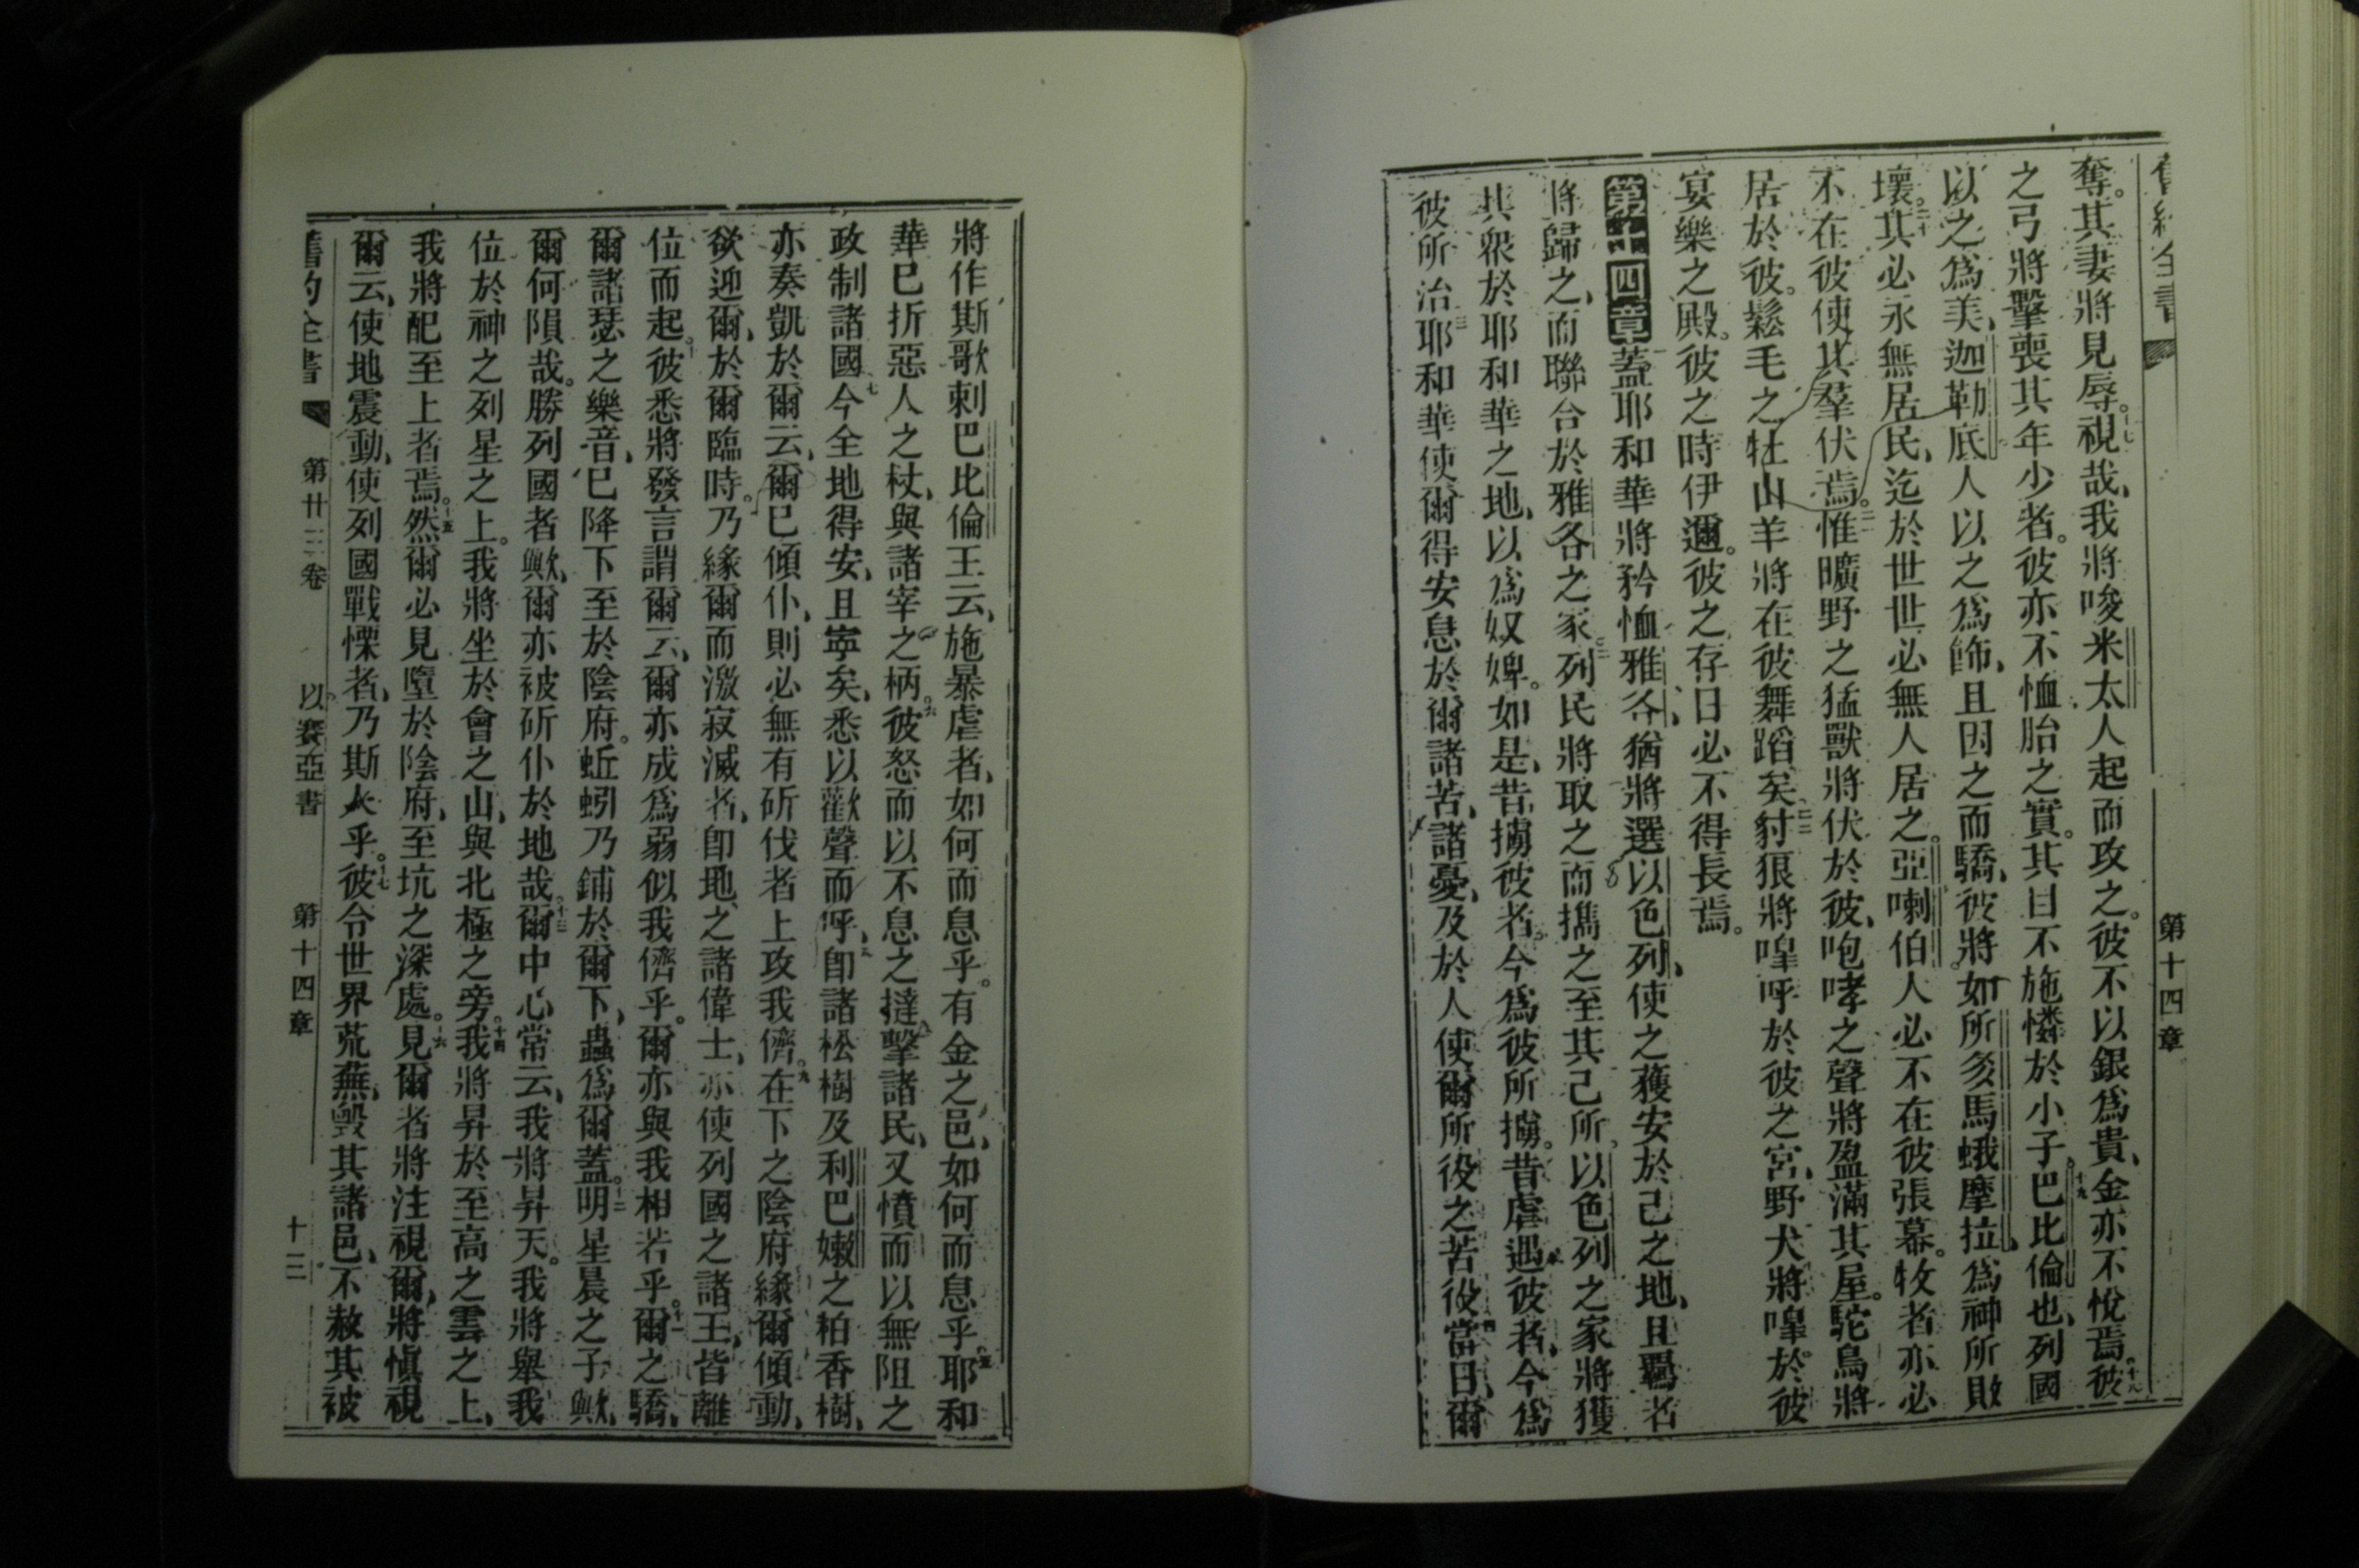 舊約全書
第十四章
奪。其妻將見辱。十七視哉、我將唆米太人起而攻之。彼不以銀爲貴、金亦不悅焉。十八彼
之弓將擊喪其年少者。彼亦不恤胎之實。其目不施憐於小子。十九巴比倫也、列國
以之爲美、迦勒底人以之爲飾、且因之而驕、彼將如所多馬蛾摩拉、爲神所敗
壞。二十其必永無居民、迄於世世必無人居之。亞喇伯人必不在彼張幕。牧者亦必
不在彼使其羣伏焉。二一惟曠野之猛獸將伏於彼、咆哮之聲將盈滿其屋。駝鳥將
居於彼。鬆毛之牡山羊將在彼舞蹈矣。二二豺狼將嘷呼於彼之宮、野犬將嘷於彼
宴樂之殿。彼之時伊邇。彼之存日必不得長焉。
第十四章蓋耶和華將矜恤雅各、猶將選以色列、使之獲安於己之地、且羇者
將歸之、而聯合於雅各之家。二列民將取之而攜之至其己所。以色列之家將獲
其衆於耶和華之地、以爲奴婢。如是、昔擄彼者。今爲彼所擄。昔虐遇彼者、今爲
彼所治。三耶和華使爾得安息於爾諸苦、諸憂、及於人使爾所役之苦役、四當日、爾
將作斯歌刺巴比倫王云、施暴虐者、如何而息乎。有金之邑、如何而息乎。五耶和
華已折惡人之杖、與諸宰之柄。六彼怒而以不息之撻擊諸民、又憤而以無阻之
政制諸國、七今全地得安、且寧矣、悉以歡聲而呼、八卽諸松樹及利巴嫩之柏香樹、
亦奏凱於爾云、爾已傾仆、則必無有斫伐者上攻我儕。九在下之陰府緣爾傾動、
欲迎爾、於爾臨時。乃緣爾而激寂滅者、卽地之諸偉士、亦使列國之諸王、皆離
位而起。十彼悉將發言謂爾云、爾亦成爲弱似我儕乎。爾亦與我相若乎。十一爾之驕、
爾諸瑟之樂音、已降下至於陰府。蚯蚓乃鋪於爾下、蟲爲爾蓋。十二明星晨之子歟、
爾何隕哉。勝列國者歟、爾亦被斫仆於地哉。十三爾中心常云、我將昇天。我將舉我
位於神之列星之上。我將坐於會之山、與北極之旁。十四我將昇於至高之雲之上、
我將配至上者焉。十五然爾必見墮於陰府、至坑之深處。十六見爾者將注視爾、將愼視
爾云、使地震動、使列國戰慄者、乃斯人乎。十七彼令世界荒蕪、毀其諸邑、不赦其被
舊約全書
第廿三卷
以賽亞書
第十四章
十二